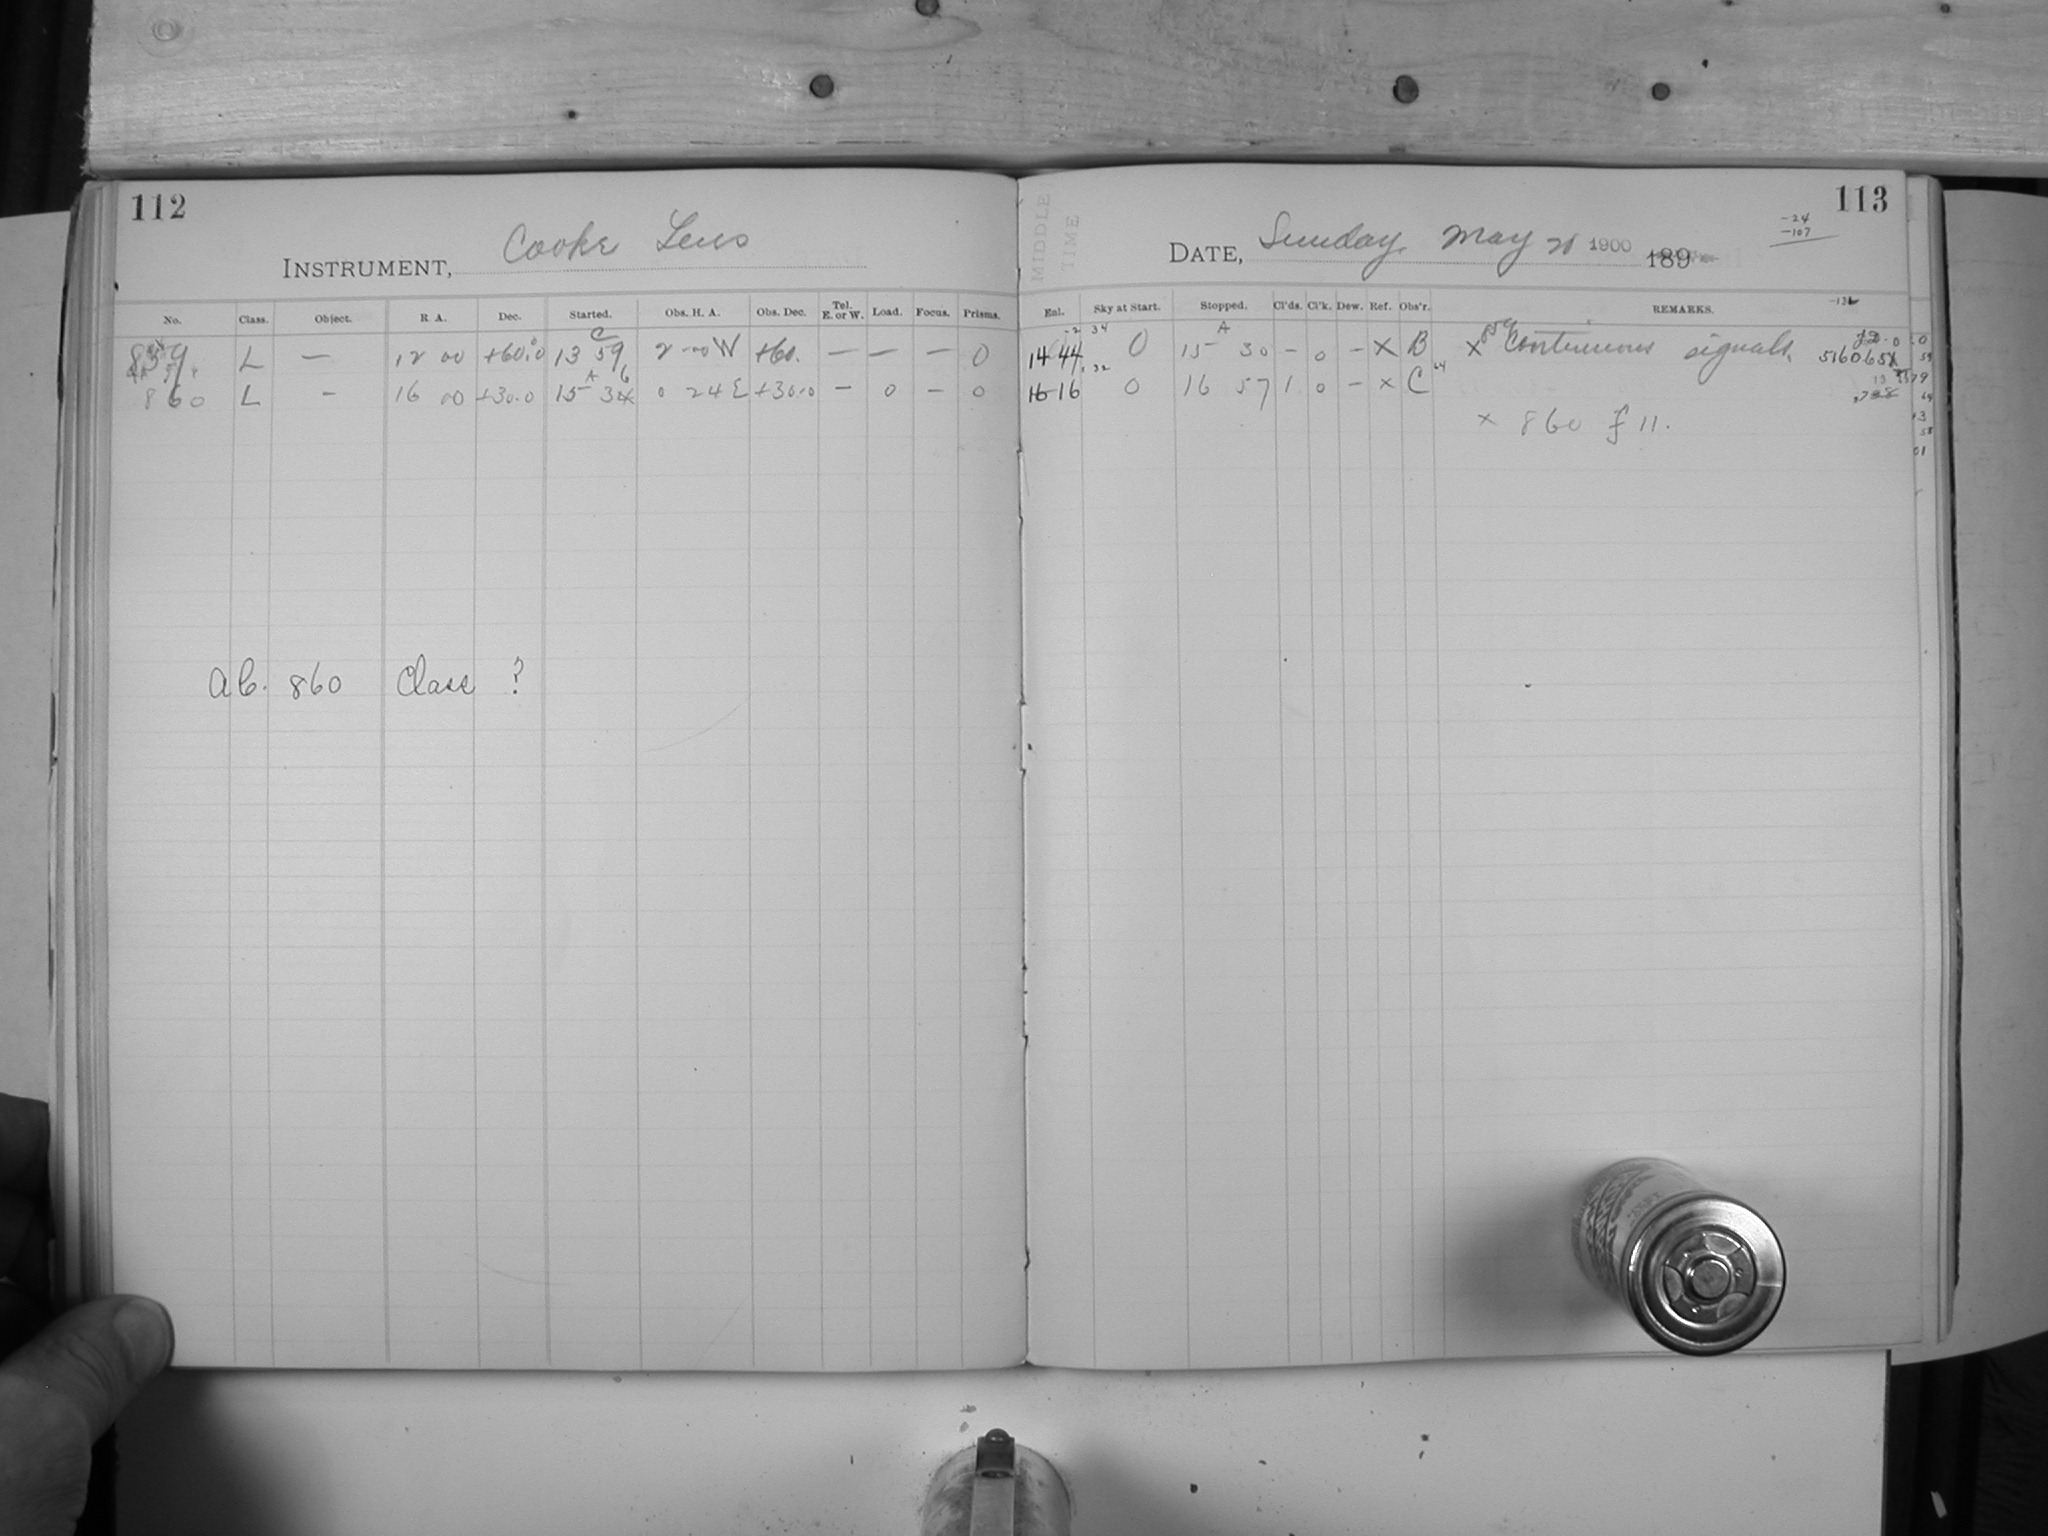 112
INSTRUMENT, Cooke Lens
No. Class. Object. R. A. Dec. Started. Obs. H. A. Obs. Dec. Tel. E. or W. Load. Focus. Prisms.
859 L — 12 00 +60.0 13 59 2 00 W +60. — — — 0
860 L - 16 00 +30.0 15 34 0 24 E +30.0 - 0 - 0
A C. 860 Class ?
113
MIDDLE TIME
DATE, Sunday May 20 1900 189
-24
-107
-131
Enl. Sky at Start. Stopped. Cl'ds. Cl'k. Dew. Ref. Obs'r. REMARKS.
14 44 0 15 30 - 0 - X B X 859 Continuous signals
16 16 0 16 57 1 0 - x C
x 860 f 11.